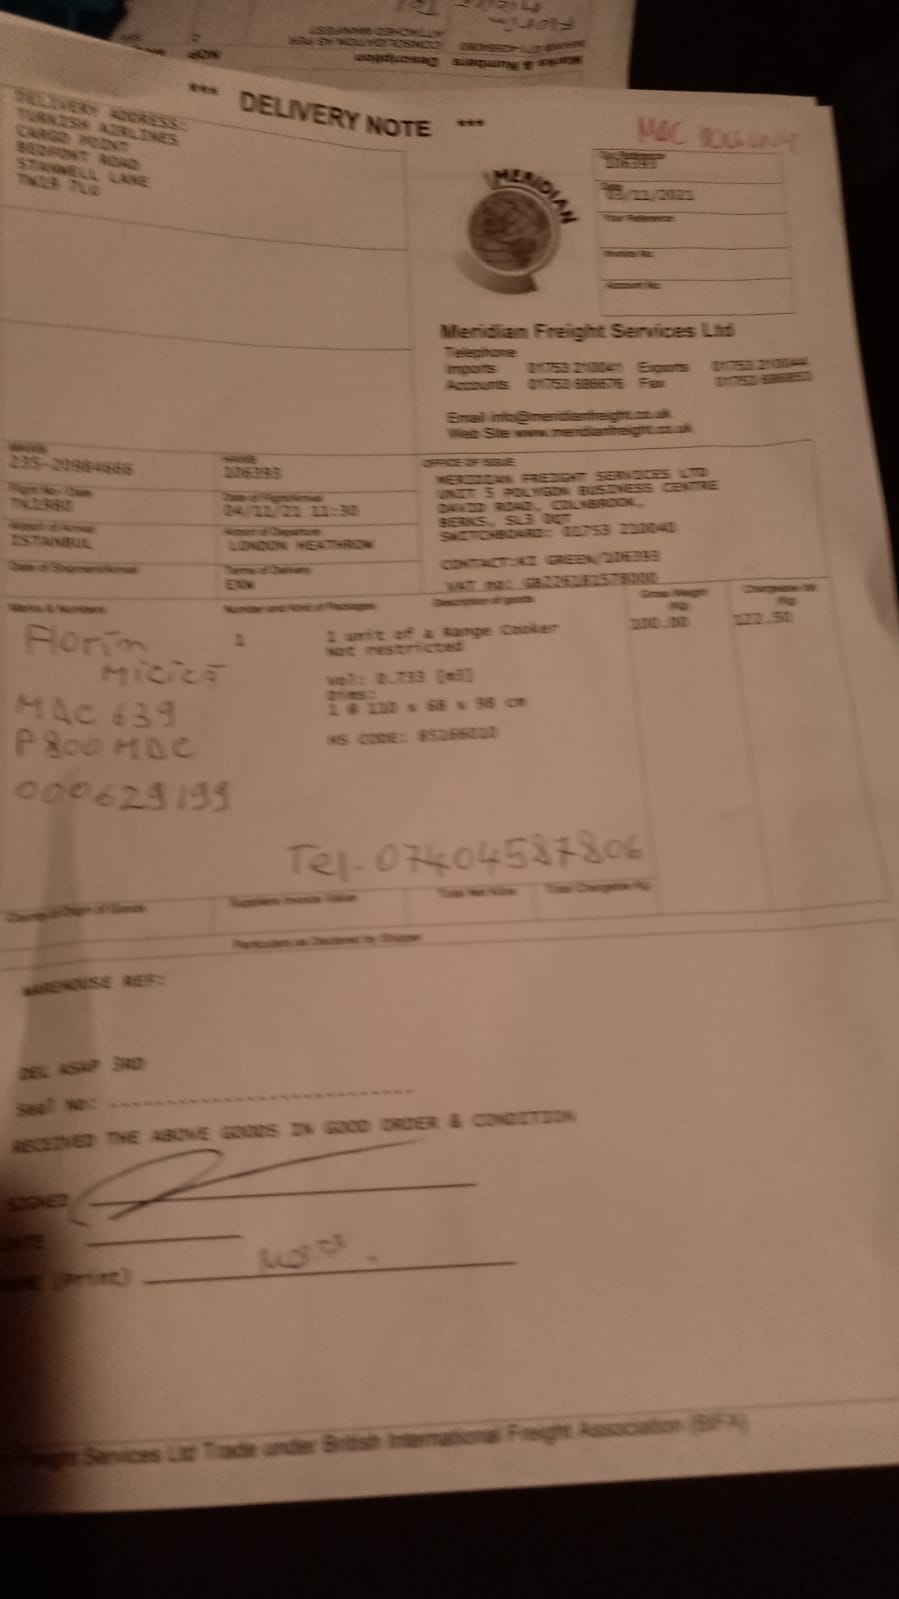 *** DELIVERY NOTE ***
DELIVERY ADDRESS:
TURKISH AIRLINES
CARGO POINT
BEDFONT ROAD
STANWELL LANE
TW19 7LU
MAC
106393
03/11/2021
Your Reference
Invoice No.
Account No.
MERIDIAN
Meridian Freight Services Ltd
Telephone
Imports 01753 210041 Exports 01753 210044
Accounts 01753 686676 Fax
Email info@meridianfreight.co.uk
Web Site www.meridianfreight.co.uk
MAWB
235-20984666
HAWB
106393
Flight No / Date
TK1980
04/11/21 11:30
Airport of Arrival
ISTANBUL
Airport of Departure
LONDON HEATHROW
Terms of Delivery
EXW
OFFICE OF ISSUE
MERIDIAN FREIGHT SERVICES LTD
UNIT 5 POLYGON BUSINESS CENTRE
DAVID ROAD, COLNBROOK,
BERKS, SL3 0QT
SWITCHBOARD: 01753 210040
CONTACT:KI GREEN/106393
Marks & Numbers
Number and Kind of Packages
Description of goods
Gross Weight
Kg
Chargeable Wt
Kg
Florin
MAC 639
P800 MAC
000629199
1
1 unit of a Range Cooker
Not restricted
Vol: 0.733 [m3]
Dims:
1 @ 110 x 68 x 98 cm
HS CODE: 85166010
100.00
122.50
Tel. 07404587806
Country of Origin of Goods
Suppliers Invoice Value
Total Chargeable Kg
Particulars as Declared by Shipper
WAREHOUSE REF:
DEL ASAP 3RD
Seal No:
RECEIVED THE ABOVE GOODS IN GOOD ORDER & CONDITION
SIGNED
DATE
(Print)
Freight Services Ltd Trade under British International Freight Association (BIFA)